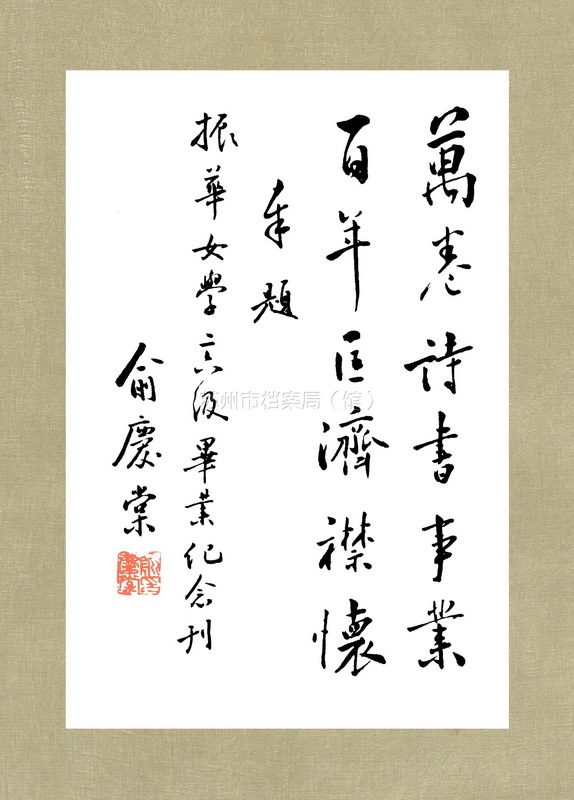 萬卷詩書事業
百年匡濟襟懷
奉題
振華女學級畢業紀念刊
俞慶棠
苏州市档案局（馆）